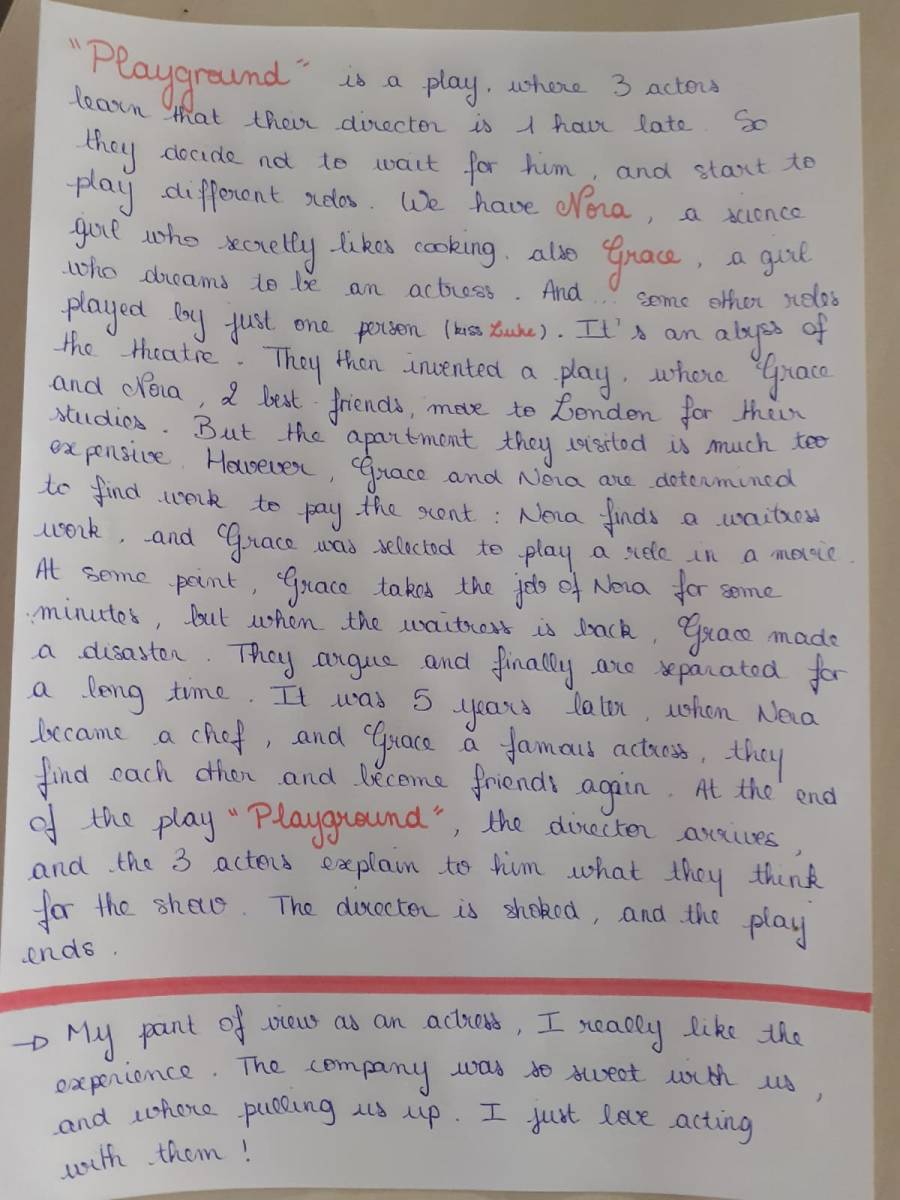 "Playground" is a play, where 3 actors
learn that their director is 1 hour late. So
they decide not to wait for him, and start to
play different roles. We have Nora, a science
girl who secretly likes cooking, also Grace, a girl
who dreams to be an actress. And... some other roles
played by just one person (kiss Luke). It's an abyss of
the theatre. They then invented a play, where Grace
and Nora, 2 best friends, move to London for their
studies. But the apartment they visited is much too
expensive. However, Grace and Nora are determined
to find work to pay the rent : Nora finds a waitress
work, and Grace was selected to play a role in a movie.
At some point, Grace takes the job of Nora for some
minutes, but when the waitress is back, Grace made
a disaster. They argue and finally are separated for
a long time. It was 5 years later, when Nora
became a chef, and Grace a famous actress, they
find each other and become friends again. At the end
of the play "Playground", the director arrives,
and the 3 actors explain to him what they think
for the show. The director is shoked, and the play
ends.
→ My point of view as an actress, I really like the
experience. The company was so sweet with us,
and where pulling us up. I just love acting
with them !